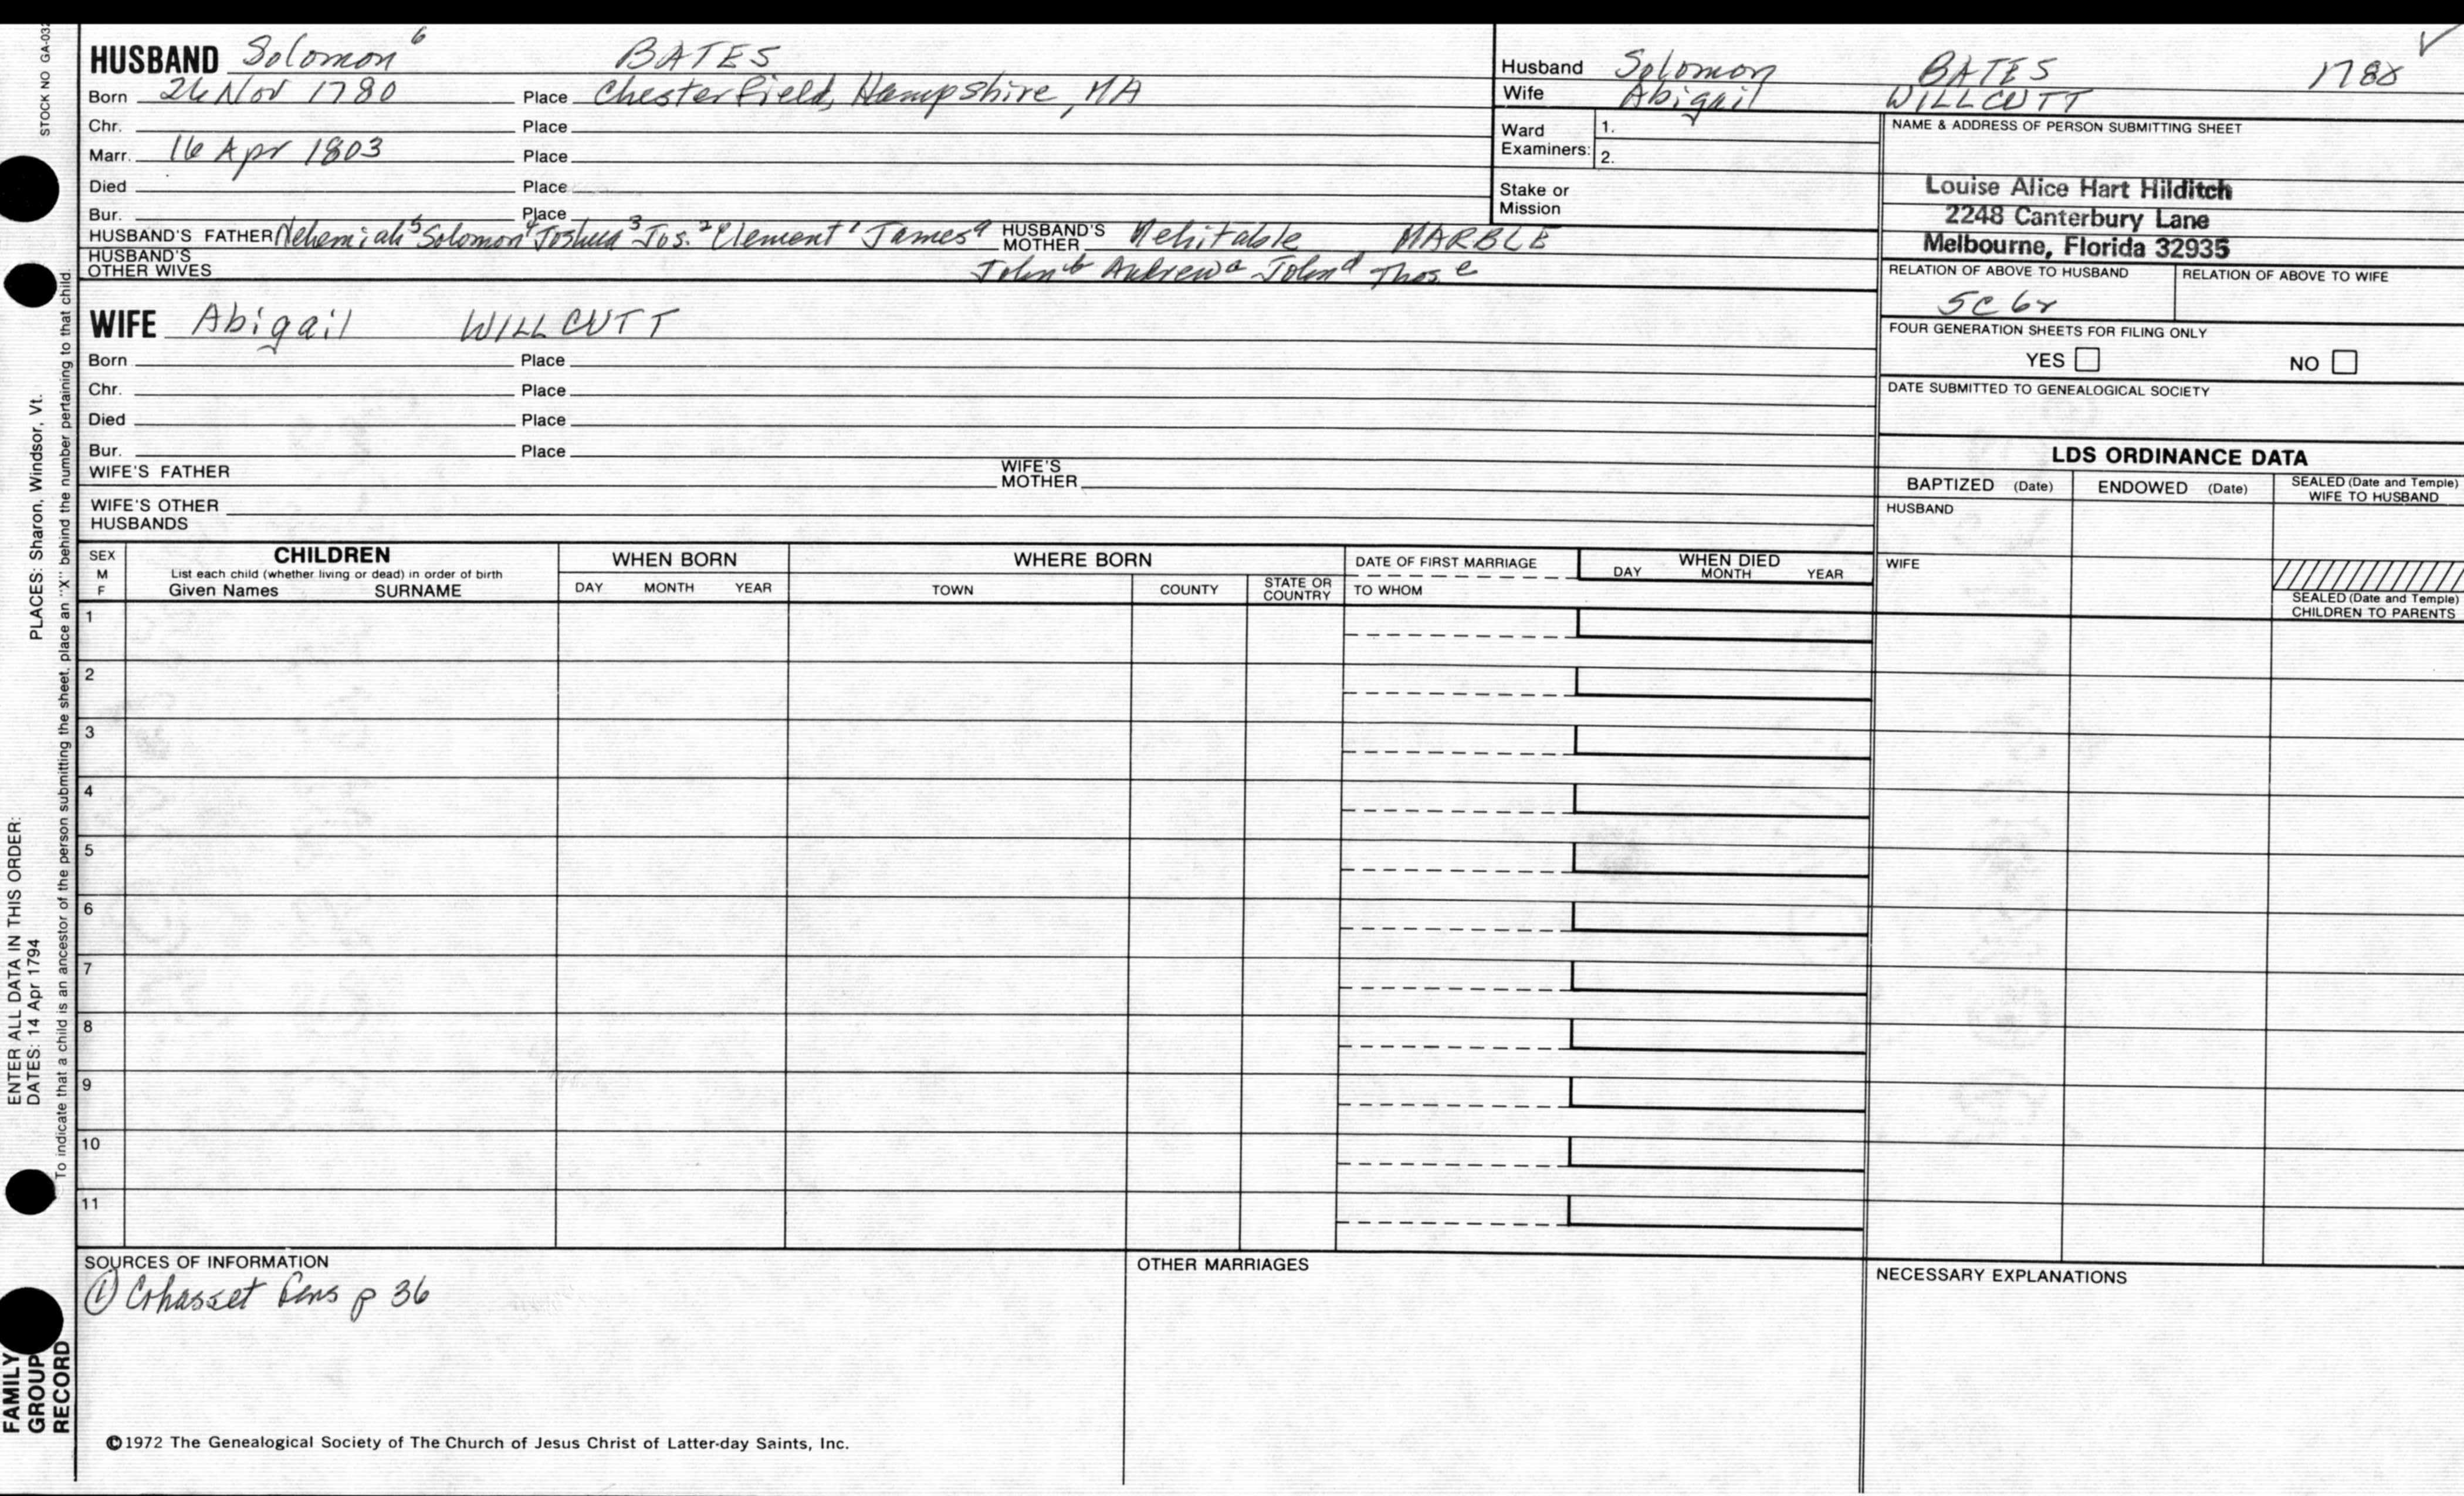 STOCK NO GA-032
HUSBAND Solomon 6 BATES
Born 26 Nov 1780 Place Chesterfield, Hampshire, MA
Chr. Place
Marr. 16 Apr 1803 Place
Died Place
Bur. Place
HUSBAND'S FATHER Nehemiah 5 Solomon 4 Joshua 3 Jos. 2 Clement 1 James a HUSBAND'S MOTHER Mehitable MARBLE
HUSBAND'S OTHER WIVES John b Andrew John d Thos. e
Husband Solomon BATES 178x
Wife Abigail WILLCUTT
Ward Examiners: 1.
2.
Stake or Mission
NAME & ADDRESS OF PERSON SUBMITTING SHEET
Louise Alice Hart Hilditch
2248 Canterbury Lane
Melbourne, Florida 32935
RELATION OF ABOVE TO HUSBAND RELATION OF ABOVE TO WIFE
5C 6r
FOUR GENERATION SHEETS FOR FILING ONLY
YES NO
DATE SUBMITTED TO GENEALOGICAL SOCIETY
WIFE Abigail WILLCUTT
Born Place
Chr. Place
Died Place
Bur. Place
WIFE'S FATHER WIFE'S MOTHER
WIFE'S OTHER HUSBANDS
LDS ORDINANCE DATA
BAPTIZED (Date) ENDOWED (Date) SEALED (Date and Temple) WIFE TO HUSBAND
HUSBAND
WIFE
SEALED (Date and Temple) CHILDREN TO PARENTS
SEX M F
CHILDREN
List each child (whether living or dead) in order of birth
Given Names SURNAME
WHEN BORN
DAY MONTH YEAR
WHERE BORN
TOWN COUNTY STATE OR COUNTRY
DATE OF FIRST MARRIAGE
TO WHOM
WHEN DIED
DAY MONTH YEAR
1
2
3
4
5
6
7
8
9
10
11
SOURCES OF INFORMATION
① Cohasset Gens p 36
OTHER MARRIAGES
NECESSARY EXPLANATIONS
©1972 The Genealogical Society of The Church of Jesus Christ of Latter-day Saints, Inc.
FAMILY GROUP RECORD
ENTER ALL DATA IN THIS ORDER:
DATES: 14 Apr 1794
PLACES: Sharon, Windsor, Vt.
To indicate that a child is an ancestor of the person submitting the sheet, place an "X" behind the number pertaining to that child.